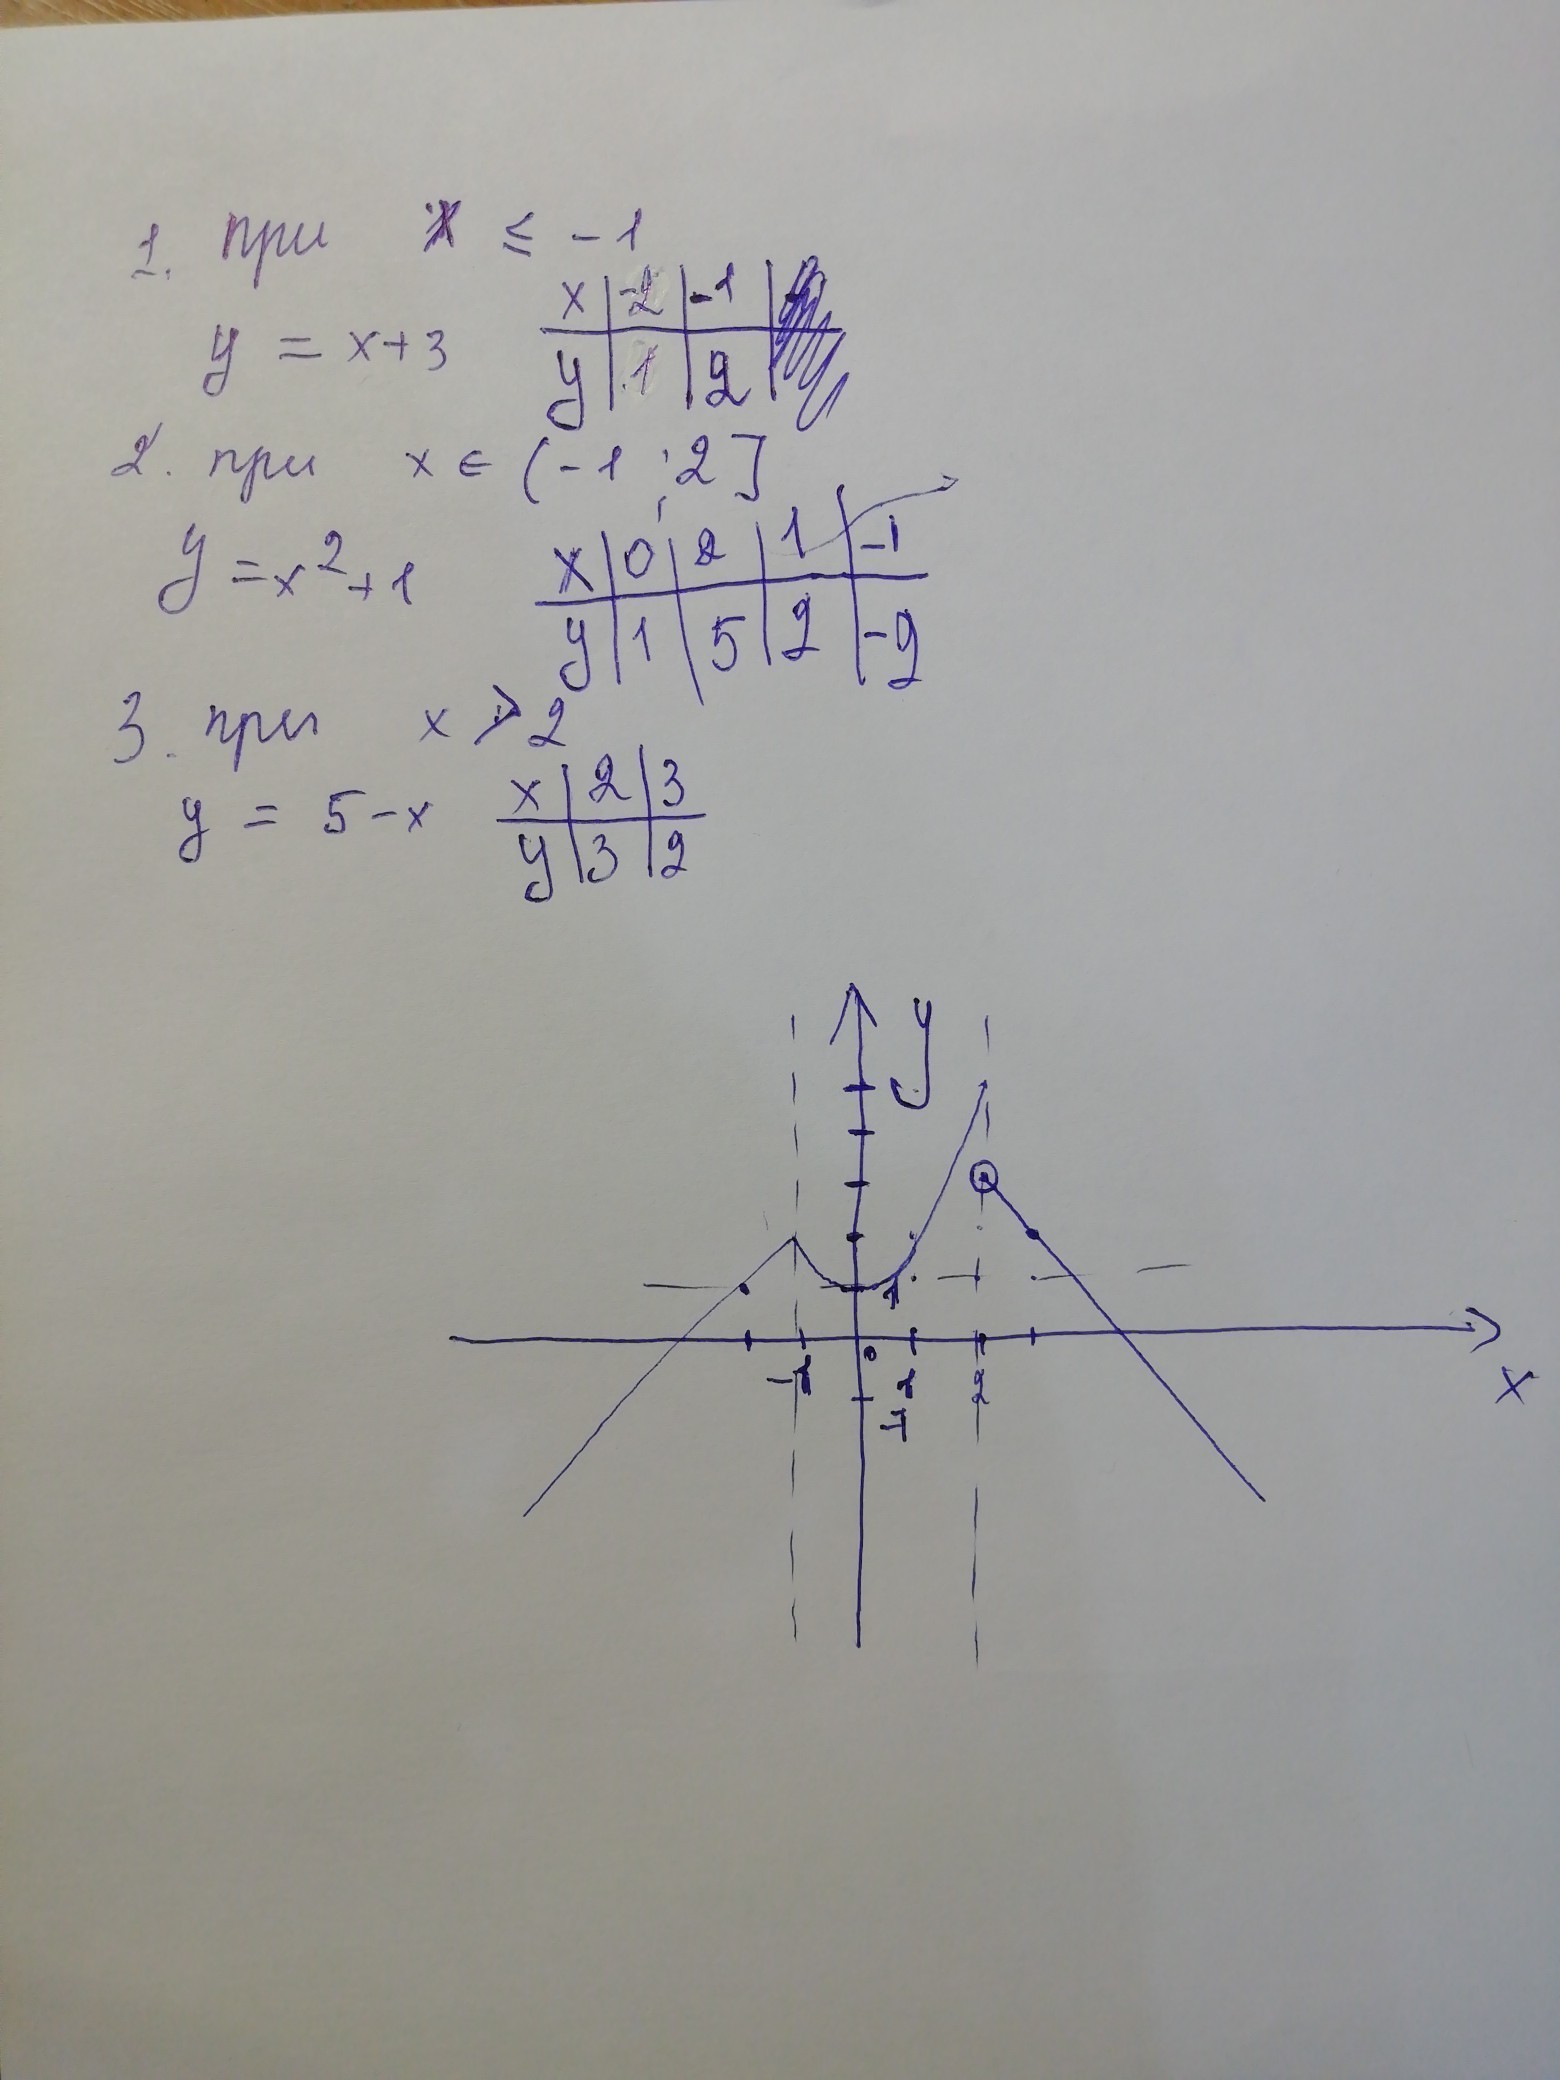 1. при x ≤ -1
x | -2 | -1 |
y = x+3
y | 1 | 2 |
2. при x ∈ (-1 ; 2]
x | 0 | 2 | 1 | -1
y = x²+1
y | 1 | 5 | 2 | -2
3. при x > 2
x | 2 | 3
y = 5-x
y | 3 | 2
y
1
0
2
x
-1